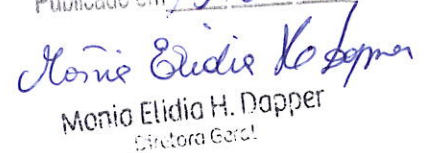 Publicado em
Monia Elidia H. Dapper
Monia Elidia H. Dapper
Diretora Geral